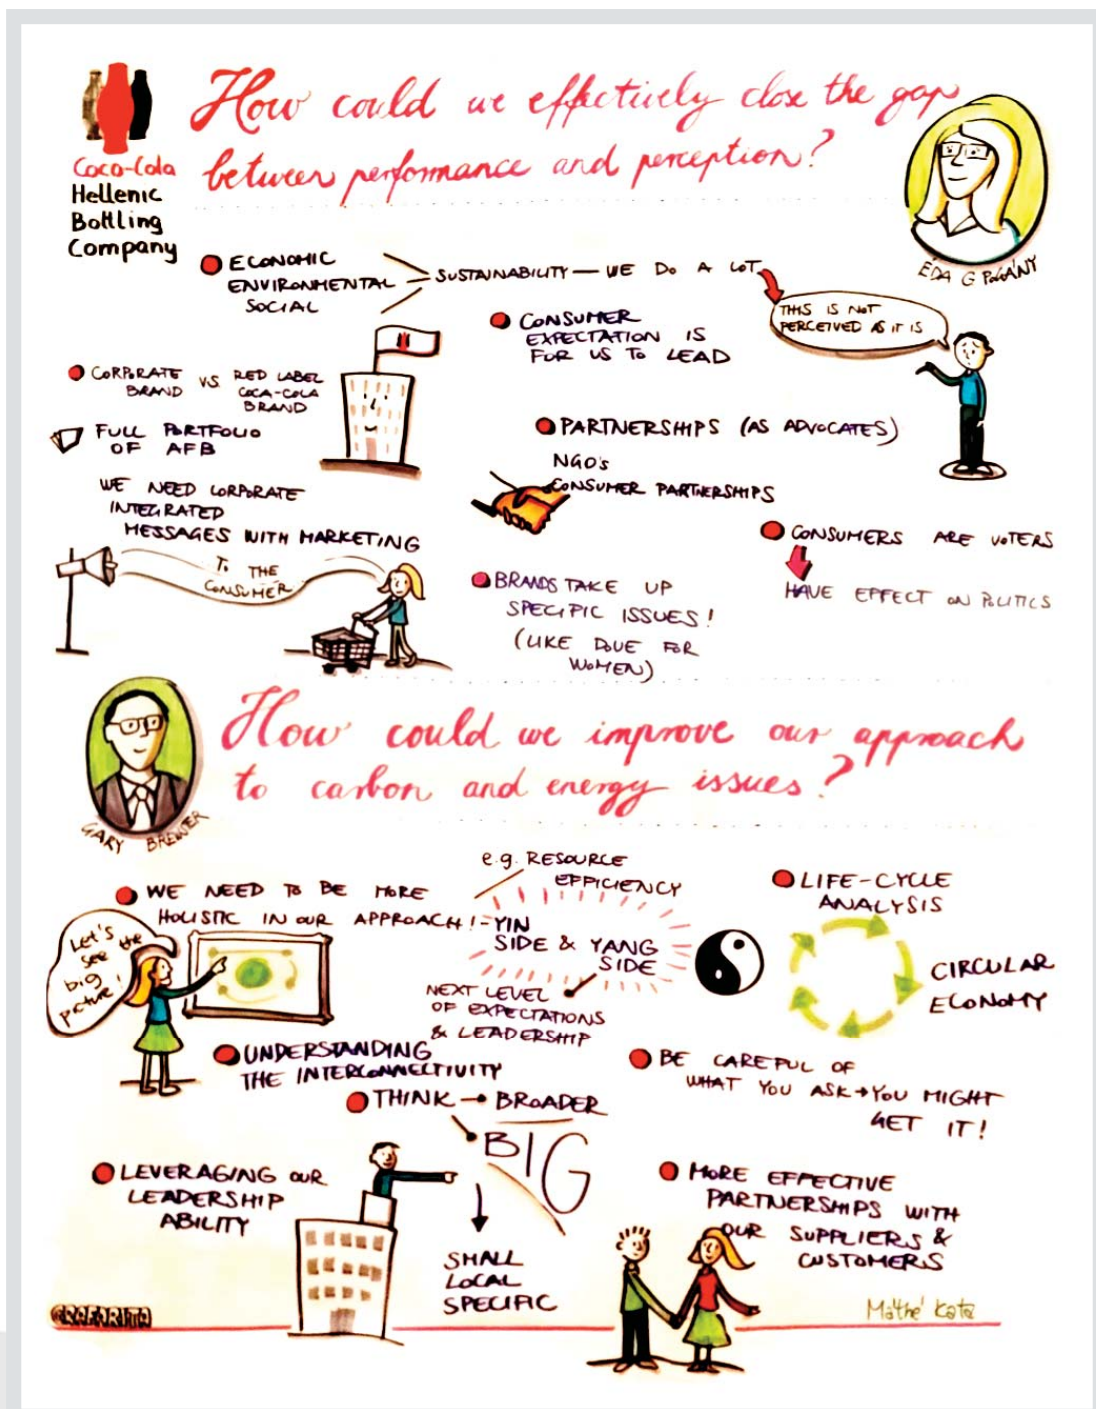 How could we effectively close the gap
between performance and perception?
Coca-Cola
Hellenic
Bottling
Company
ÉDA G POGÁNY
ECONOMIC
ENVIRONMENTAL
SOCIAL
SUSTAINABILITY — WE DO A LOT
THIS IS NOT
PERCEIVED AS IT IS
CONSUMER
EXPECTATION IS
FOR US TO LEAD
CORPORATE
BRAND
VS
RED LABEL
COCA-COLA
BRAND
FULL PORTFOLIO
OF AFB
PARTNERSHIPS (AS ADVOCATES)
NGO's
CONSUMER PARTNERSHIPS
WE NEED CORPORATE
INTEGRATED
MESSAGES WITH MARKETING
TO THE
CONSUMER
CONSUMERS ARE VOTERS
HAVE EFFECT ON POLITICS
BRANDS TAKE UP
SPECIFIC ISSUES!
(LIKE DOVE FOR
WOMEN)
How could we improve our approach
to carbon and energy issues?
GARY BREWSTER
WE NEED TO BE MORE
HOLISTIC IN OUR APPROACH!
Let's
see the
big
picture!
e.g. RESOURCE
EFFICIENCY
-YIN
SIDE & YANG
SIDE
NEXT LEVEL
OF EXPECTATIONS
& LEADERSHIP
LIFE-CYCLE
ANALYSIS
CIRCULAR
ECONOMY
UNDERSTANDING
THE INTERCONNECTIVITY
BE CAREFUL OF
WHAT YOU ASK → YOU MIGHT
GET IT!
THINK → BROADER
BIG
SMALL
LOCAL
SPECIFIC
LEVERAGING OUR
LEADERSHIP
ABILITY
MORE EFFECTIVE
PARTNERSHIPS WITH
OUR SUPPLIERS &
CUSTOMERS
Máthé Kata